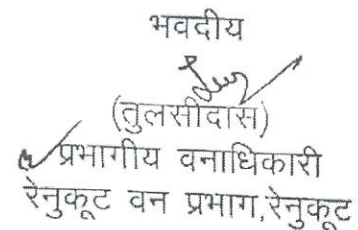 भवदीय
(तुलसीदास)
प्रभागीय वनाधिकारी
रेनुकूट वन प्रभाग,रेनुकूट